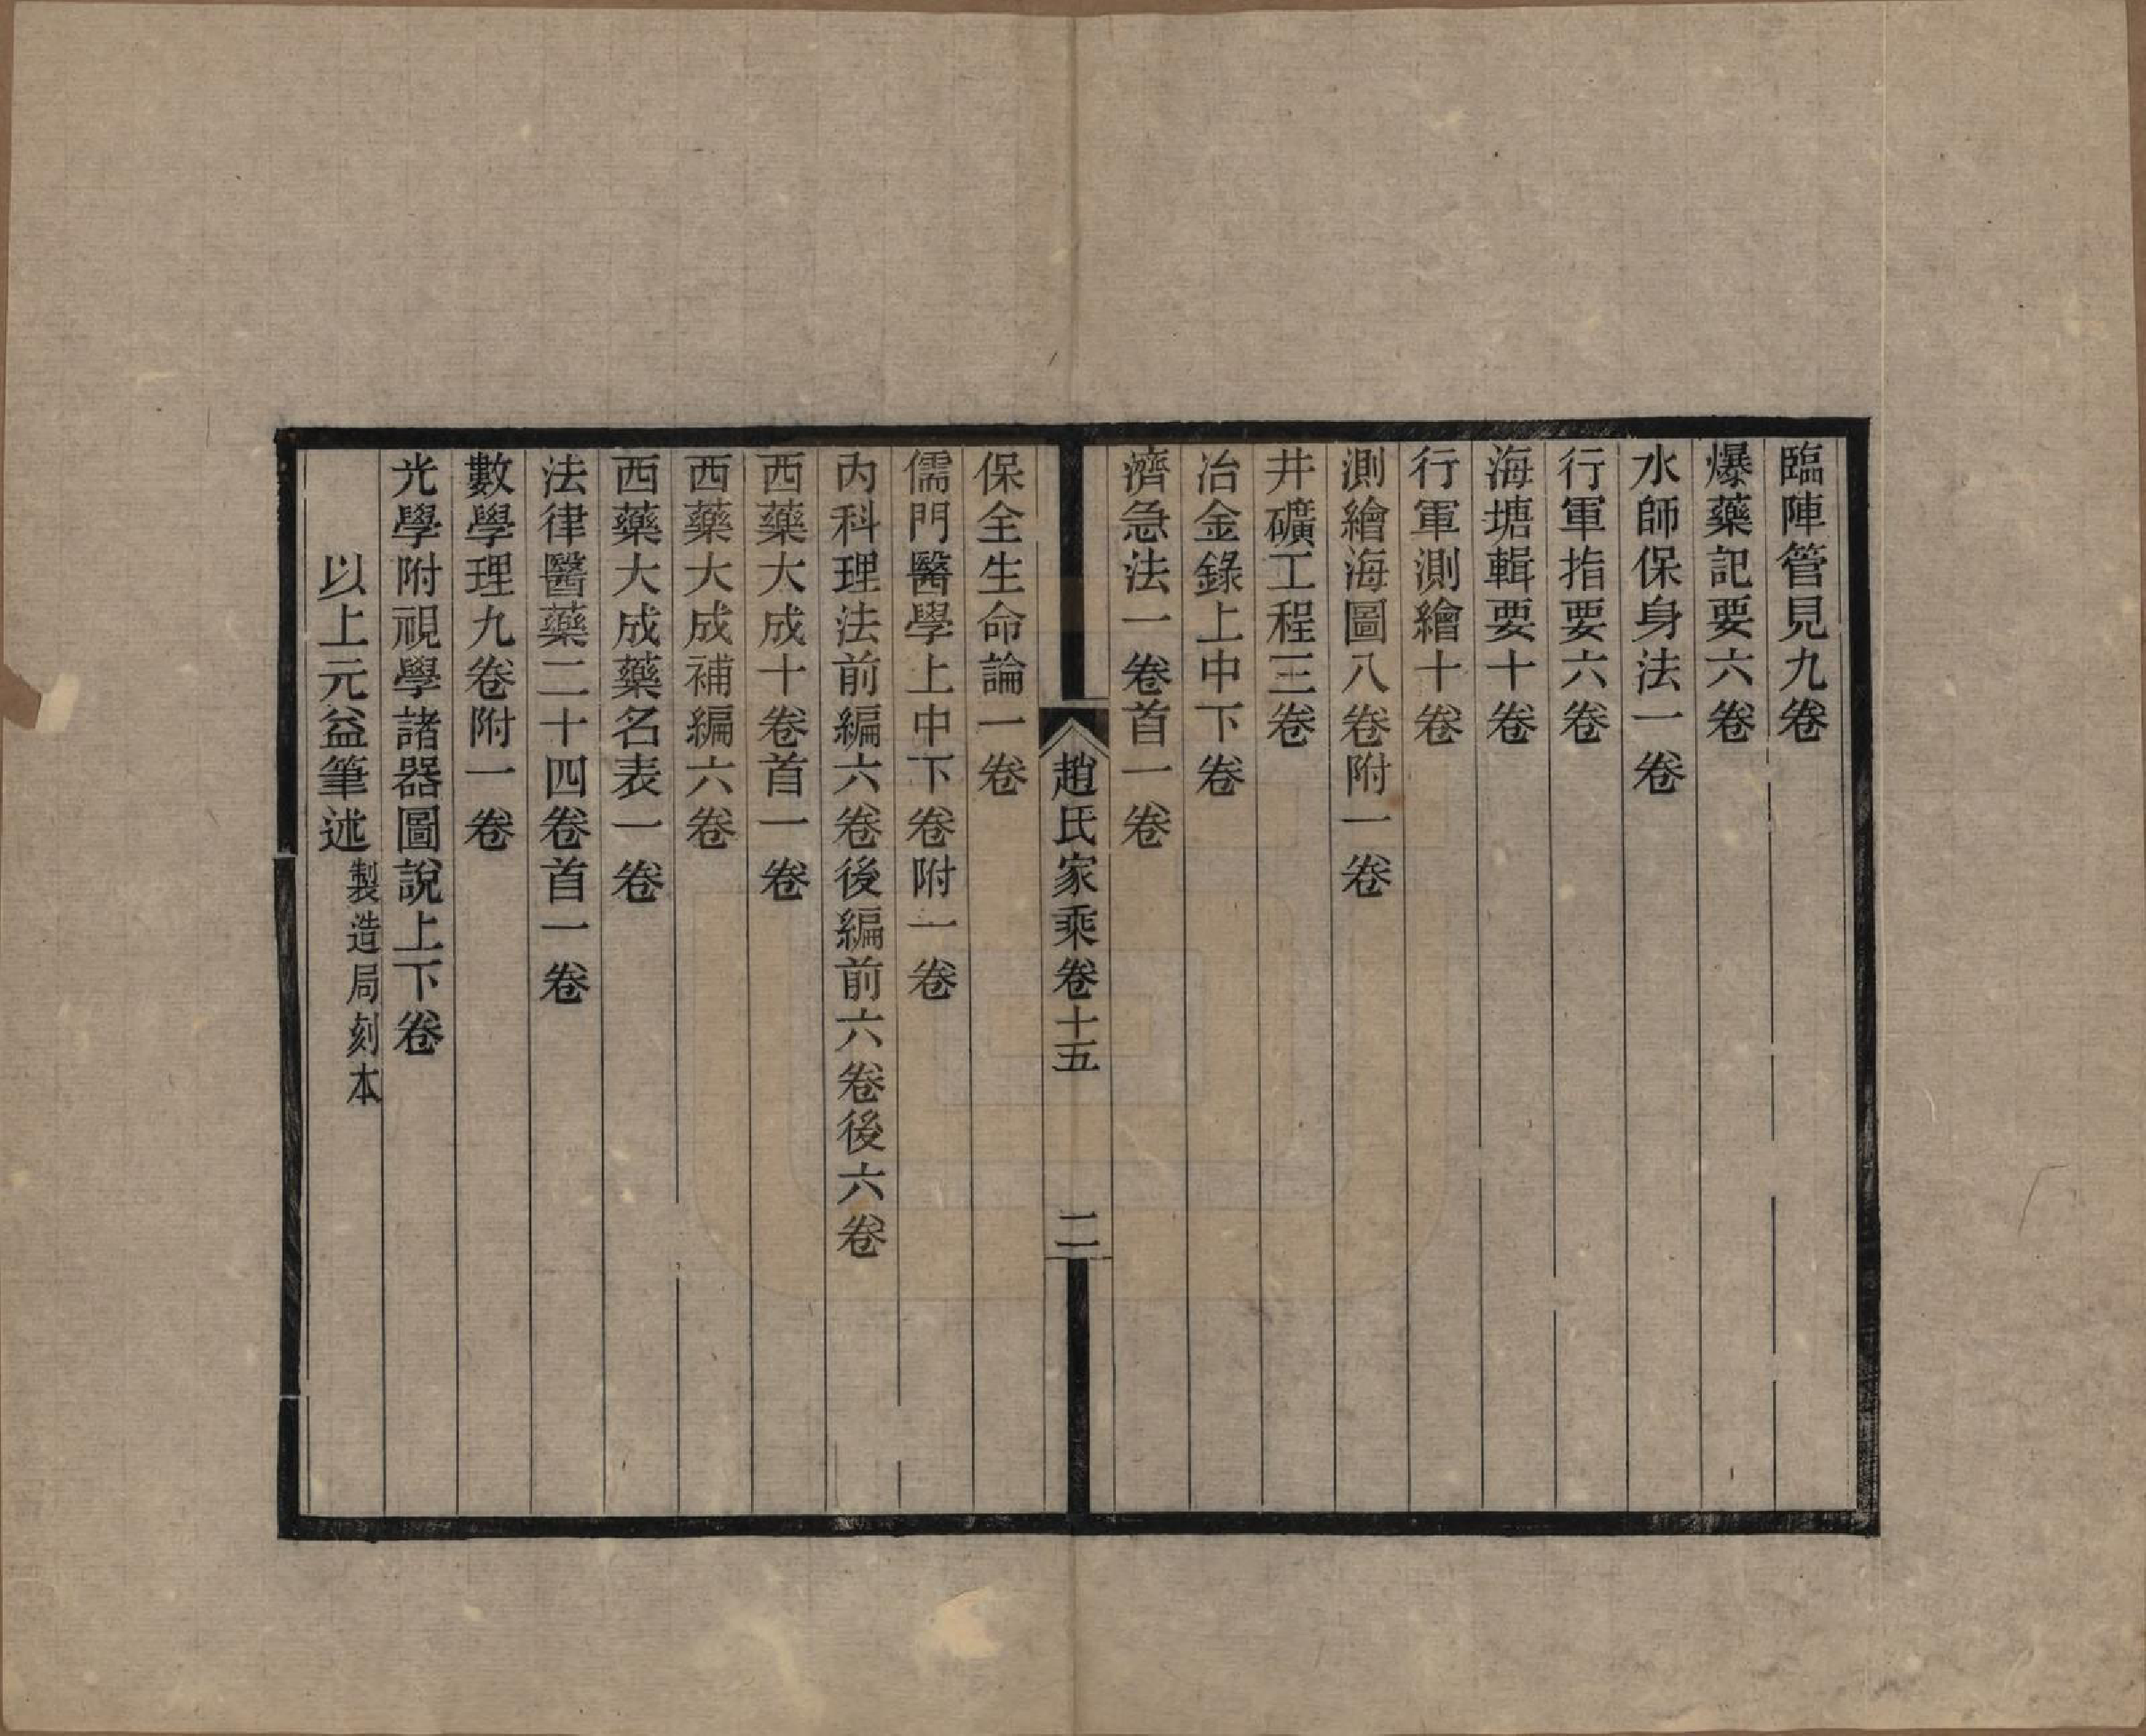 臨陣管見九卷
爆藥記要六卷
水師保身法一卷
行軍指要六卷
海塘輯要十卷
行軍測繪十卷
測繪海圖八卷附一卷
井礦工程三卷
冶金錄上中下卷
濟急法一卷首一卷
趙氏家乘卷十五
二
保全生命論一卷
儒門醫學上中下卷附一卷
內科理法前編六卷後編前六卷後六卷
西藥大成十卷首一卷
西藥大成補編六卷
西藥大成藥名表一卷
法律醫藥二十四卷首一卷
數學理九卷附一卷
光學附視學諸器圖說上下卷
以上元益筆述製造局刻本